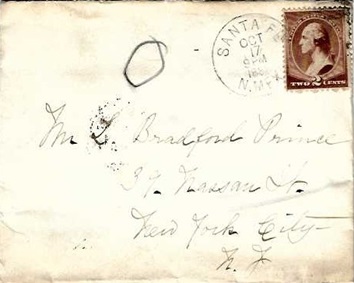 SANTA FE
OCT
17
9 PM
N.M.
TWO 2 CENTS
Mr L. Bradford Prince
37 Nassau St.
New York City
N.Y